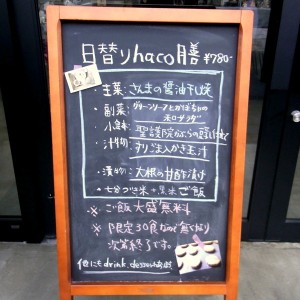 日替りhaco膳 ¥780-
・主菜:さんまの醤油干し焼
・副菜:グリーンリーフとかぼちゃの
和サラダ
・小鉢:聖護院かぶらの
・汁物:すりごま入かき玉汁
・漬物:大根の甘酢漬け
・七分づき米+黒米ご飯
※ご飯大盛無料
※限定30食なので無くなり
次第終了です。
他にもdrink、dessert